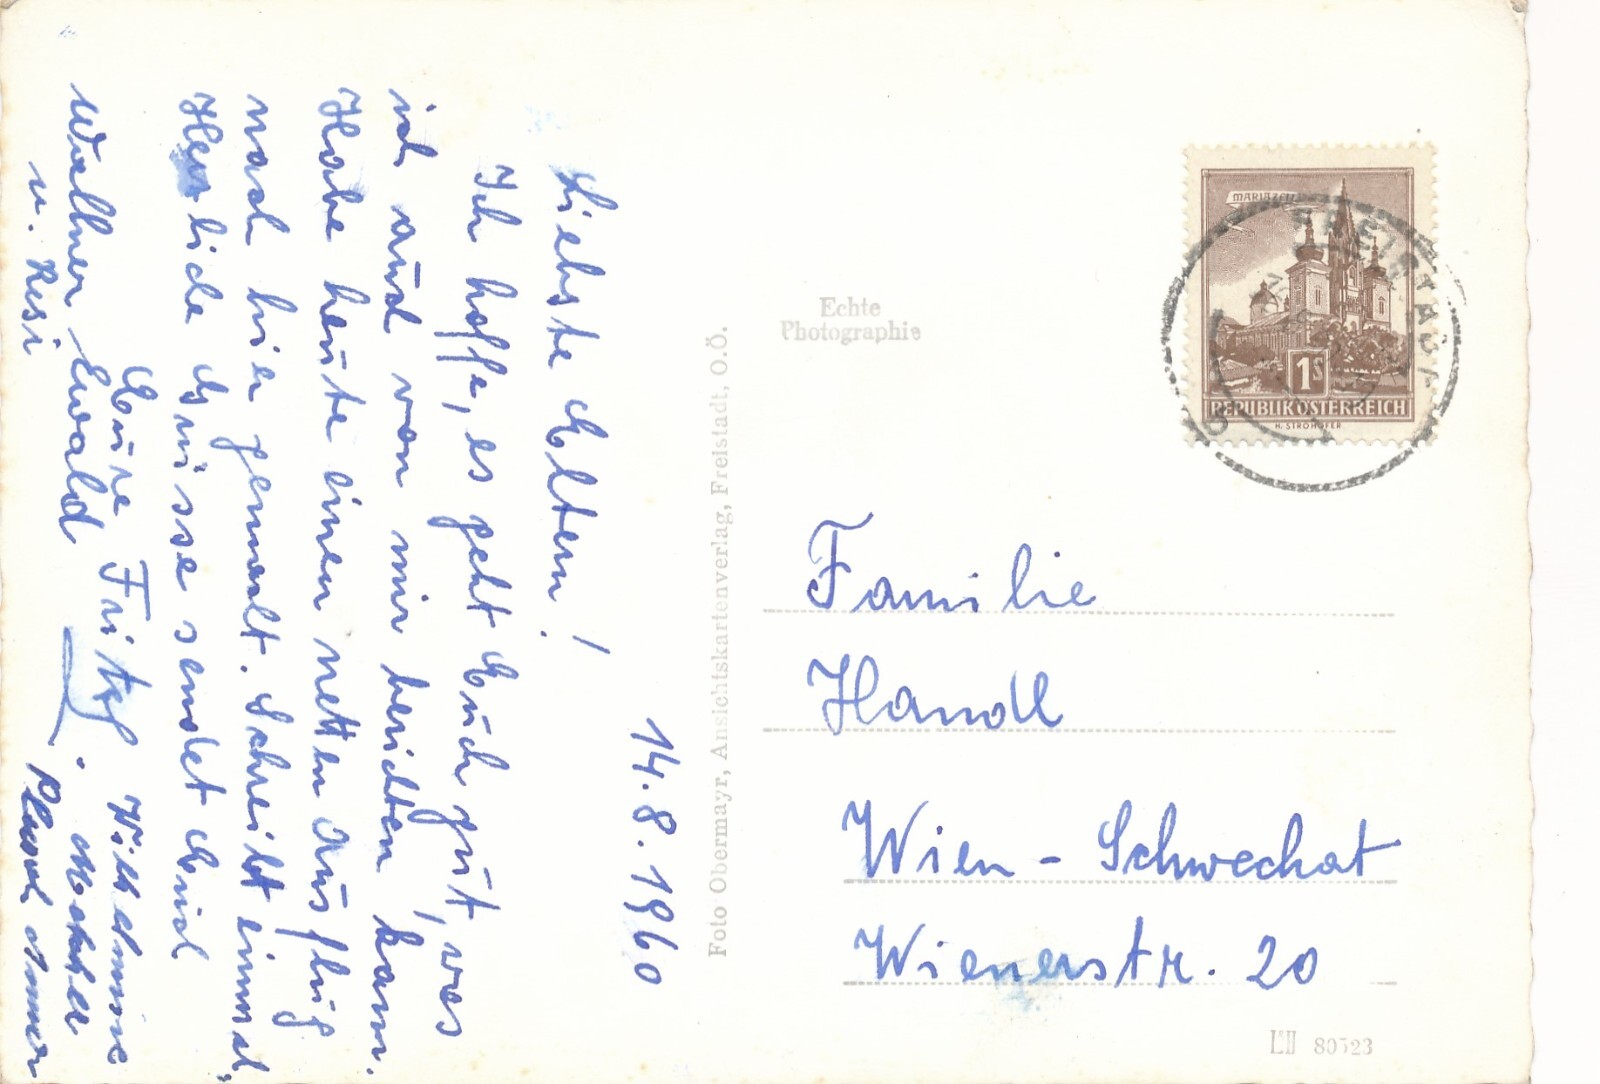 14.8.1960
Liebste Eltern!
Ich hoffe, es geht Euch gut, was
ich auch von mir berichten kann.
Habe heute einen netten Ausflug
nach hier gemacht. Schreibt einmal,
Herzliche Grüsse sendet Euch
Eure Fritzl. Wilhelmine
Wallner Ewald
u. Resi
Foto Obermayr, Ansichtskartenverlag, Freistadt, O.Ö.
Echte
Photographie
MARIAZELL
1S
REPUBLIK ÖSTERREICH
H. STROHOFER
FREISTADT
Familie
Handl
Wien - Schwechat
Wienerstr. 20
80523